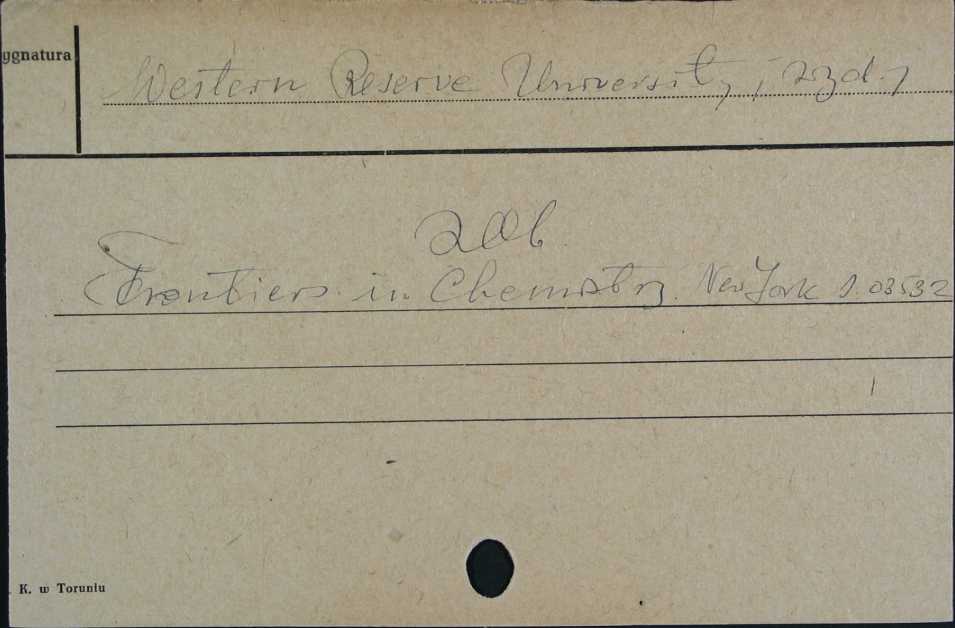 ygnatura
Western Reserve University,
zob
Frontiers in Chemistry. New York S. 03532
K. w Toruniu